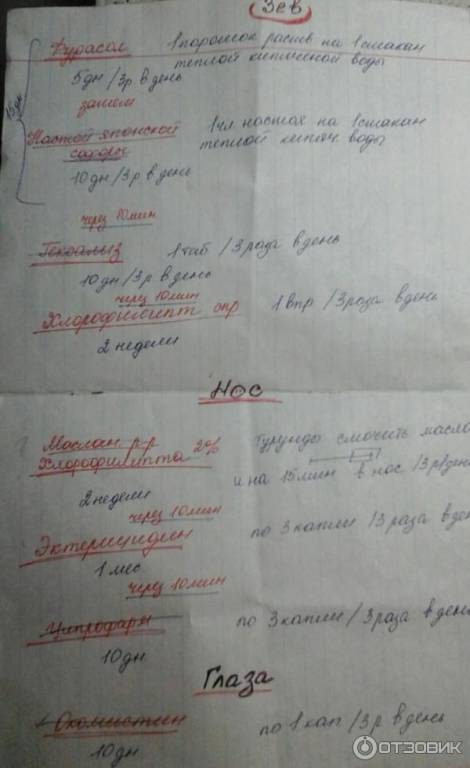 Зев
Фурасол 1 порошок раств на 1 стакан
теплой кипяченой воды
5дн /3р в день
затем
15 дн
Настой японской 1чл настоя на 1 стакан
софоры теплой кипяч. воды
10 дн /3р в день
через 10 мин
Гексализ 1 таб /3 раза в день
10 дн /3р в день
через 10 мин
Хлорофиллипт спр 1 впр /3 раза в день
2 недели
Нос
Маслян. р-р Турунды смочить масло
Хлорофилипта 2% и на 15 мин в нос /3р/ден
2 недели
через 10 мин
Эктерицидин по 3 капли /3 раза в ден
1 мес
через 10 мин
Ципрофарм по 3 капли /3 раза в день
10 дн
Глаза
Окомистин по 1 кап /3р в день
10 дн
ОТЗОВИК